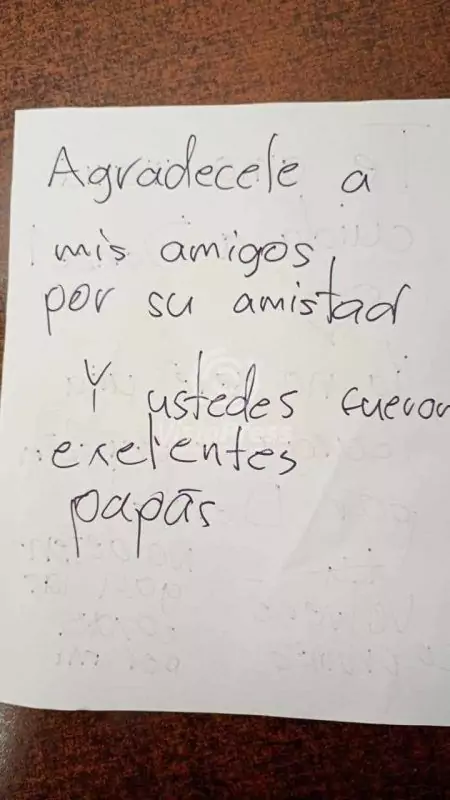 Agradecele a
mis amigos
por su amistad
Y ustedes fueron
exelentes
papás